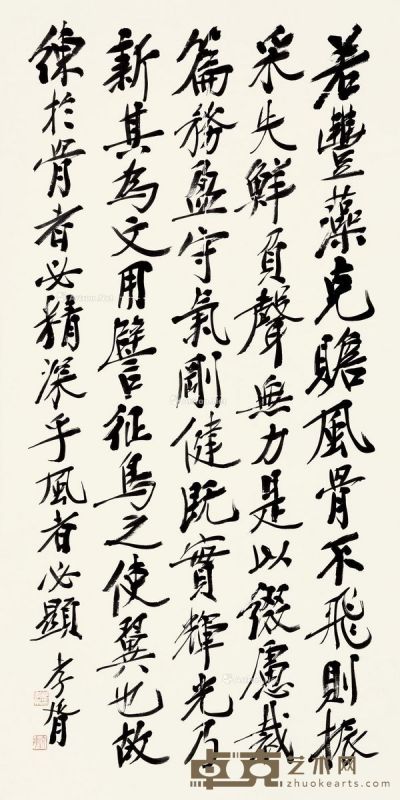 若豐藻克贍風骨不飛則振
采失鮮負聲無力是以綴慮裁
篇務盈守氣剛健既實輝光乃
新其為文用譬征鳥之使翼也故
練於骨者必精深乎風者必顯 孝胥
卓克艺术网
zhuokearts.com